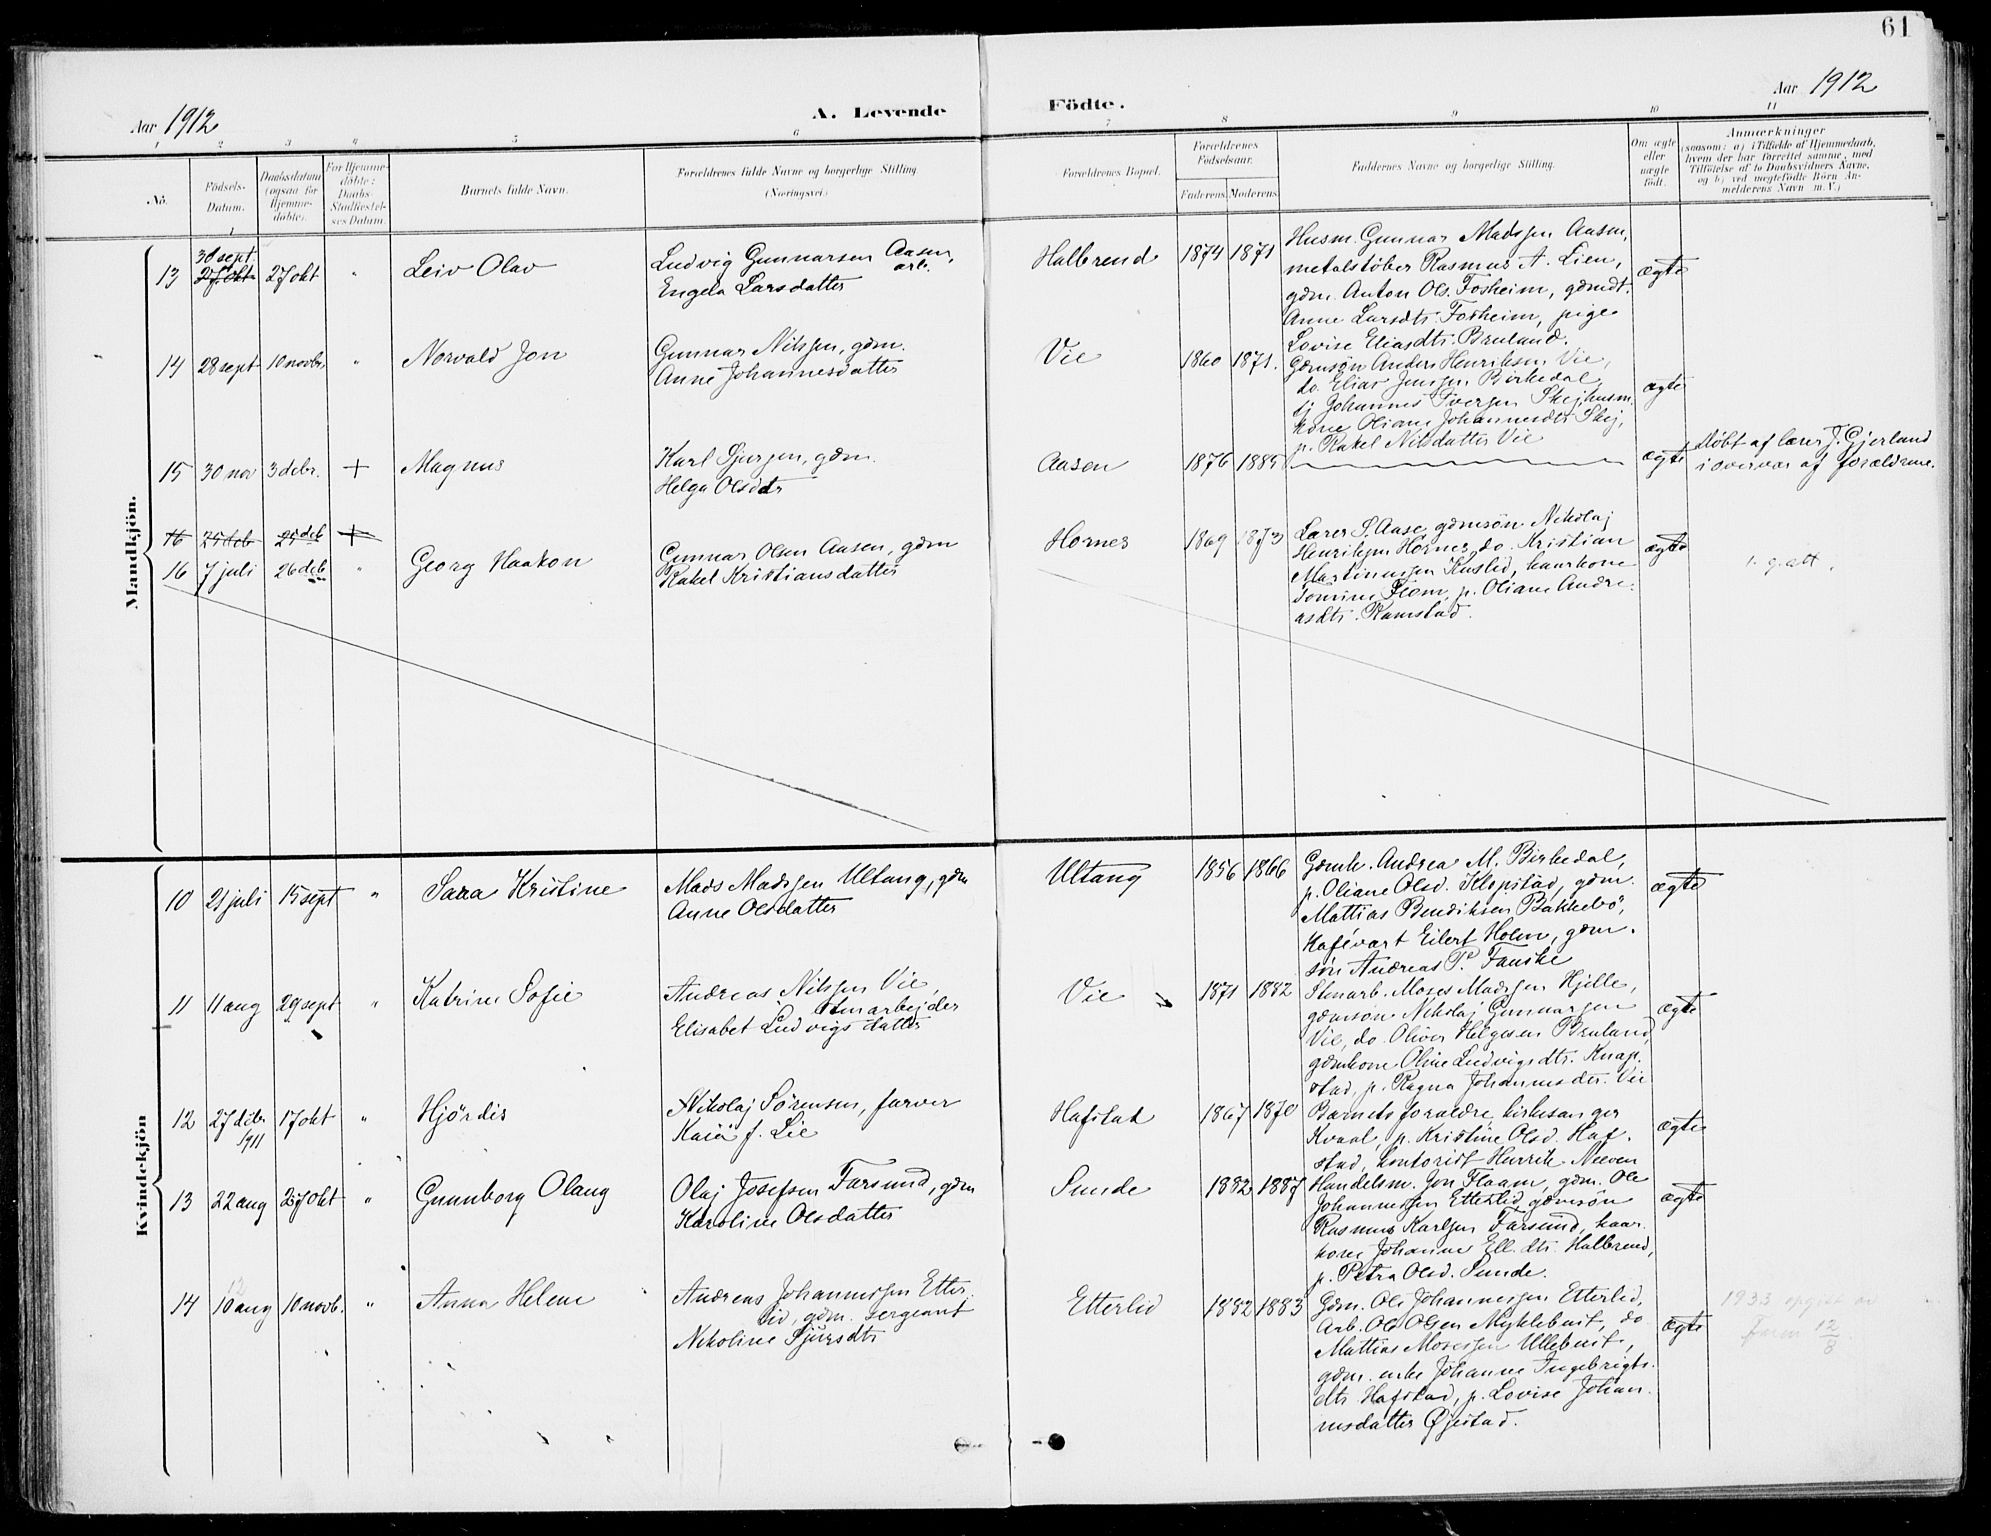 61
Aar 1912
A. Levende
Födte.
Aar 1912
1 2 3 4 5 6 7 8 9 10 11
No.
Födsels-
Datum.
Daabsdatum
(ogsaa for
Hjemme-
döbte).
For Hjemme-
döbte:
Daabs-
Stadfæstel-
ses Datum.
Barnets fulde Navn.
Forældrenes fulde Navne og borgerlige Stilling.
(Næringsvei.)
Forældrenes Bopæl.
Forældrenes
Födselsaar.
Faderens. Moderens.
Faddernes Navne og borgerlige Stilling.
Om ægte
eller
uægte
födt.
Anmærkninger
(saasom: a) i Tilfælde af Hjemmedaab,
hvem der har forrettet samme, med
Tilföielse af to Daabsvidners Navne,
og b) ved uægtefödte Börn An-
melderens Navn m. V.)
Mandkjön.
13 30 sept. 27 okt 27 okt " Leiv Olav
Ludvig Gunnarsen Aasen,
arb.
Engela Larsdatter
Halbrend 1874 1871
Husm. Gunnar Madsen Aasen,
metalstöber Rasmus A. Lien,
gdm. Anton Ols. Fosheim, gdmdt.
Anne Larsdtr. Fosheim, pige
Lovise Eliasdtr. Bruland.
ægte
14 28 sept 10 novbr. " Norvald Jon
Gunnar Nilsen, gdm.
Anne Johannesdatter
Vie 1860 1871.
Gdmsön Anders Henriksen Vie,
do. Elias Jensen Birkedal,
sj Johannes Iversen Skej, husm.
kone Oliane Johannesdtr. Skej,
p. Rakel Nilsdatter Vie
ægte
15 30 nov 3 debr. + Magnus
Karl Sjursen, gdm.
Helga Olsdtr
Aasen 1876 1885
ægte
döbt af lærer J. Gjerland
i overvær af forældrene.
16 25 deb 25 deb +
16 7 juli 26 deb " Georg Haakon
Gunnar Olsen Aasen, gdm
Rakel Kristiansdatter
Hornes 1869 1873
Lærer S. Aase, gdmsön Nikolaj
Henriksen Hornes, do. Kristian
Martinussen Kuslid, huskone
Tomine Flom, p. Oliane Andre-
asdtr. Ramstad.
ægte
Kvindekjön
10 21 juli 15 sept " Sara Kristine
Mads Madsen Ultang, gdm
Anne Olsdatter
Ultang 1856 1866
Gdmk. Andrea M. Birkedal,
p. Oliane Olsd. Klopstad, gdm.
Mattias Bendiksen Bakkebö,
kafévært Eilert Holm, gdm.
sön Andreas P. Fauske
ægte
11 11 aug 29 sept " Katrine Sofie
Andreas Nilsen Vie,
stenarbejder
Elisabet Ludvigsdatter
Vie 1871 1882
Stenarb. Moses Madsen Hjelle,
gdmsön Nikolaj Gunnarsen
Vie, do. Oliver Helgesen Bruland,
gdmkone Oline Ludvigsdtr. Knap-
stad, p. Ragna Johannesdtr. Vie
ægte
12 27 debr. 1911 17 okt " Hjördis
Nikolaj Sörensen, farver
Kaia f. Lie
Hafstad 1867 1870
Barnets forældre, kirkesanger
Kvaal, p. Kristine Olsd. Haf-
stad, kontorist Henrik Neeven
ægte
13 22 aug 27 okt " Gunnborg Olaug
Olaj Josefsen Farsund, gdm
Karoline Olsdatter
Sunde 1882 1887
Handelsm. Jon Flaam, gdm. Ole
Johannessen Etterlid, gdmsön
Rasmus Karlsen Farsund,
kone Johanne Ell.dtr. Halbrend,
p. Petra Olsd. Sunde.
ægte
14 12 10 aug 10 novb. " Anna Helene
Andreas Johannessen Etter-
lid, gdm. sergeant
Nikoline Sjursdtr
Etterlid 1882 1883
Gdm. Ole Johannessen Etterlid,
Arb. Ole Olsen Myklebust, do
Mattias Mosessen Ullebust,
gdm. enke Johanne Ingebrigts-
dtr Hafstad, p. Lovise Johan-
nesdatter Øjestad.
ægte
1933 opgit av
12/8